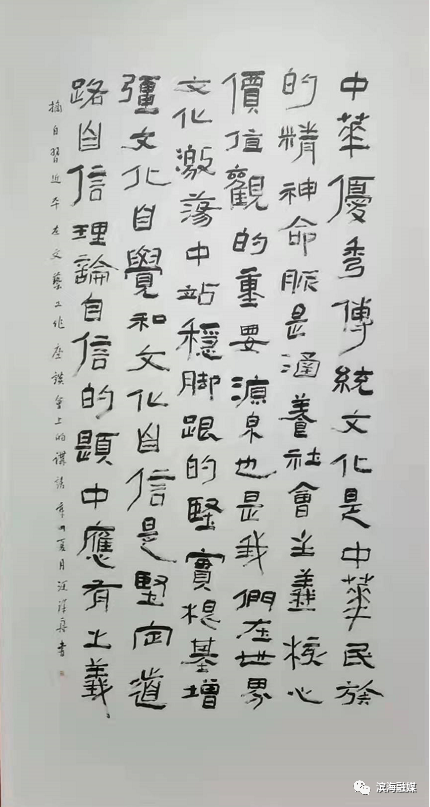 中華優秀傳統文化是中華民族
的精神命脈是涵養社會主義核心
價值觀的重要源泉也是我們在世界
文化激蕩中站穩脚跟的堅實根基增
彊文化自覺和文化自信是堅定道
路自信理論自信的題中應有之義
摘自習近平在文藝工作座談會上的講話 夏月 書
滨海融媒